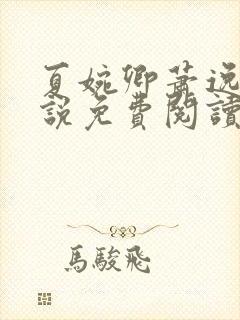 夏婉卿萧逸
說免費閱讀
馬駿飛